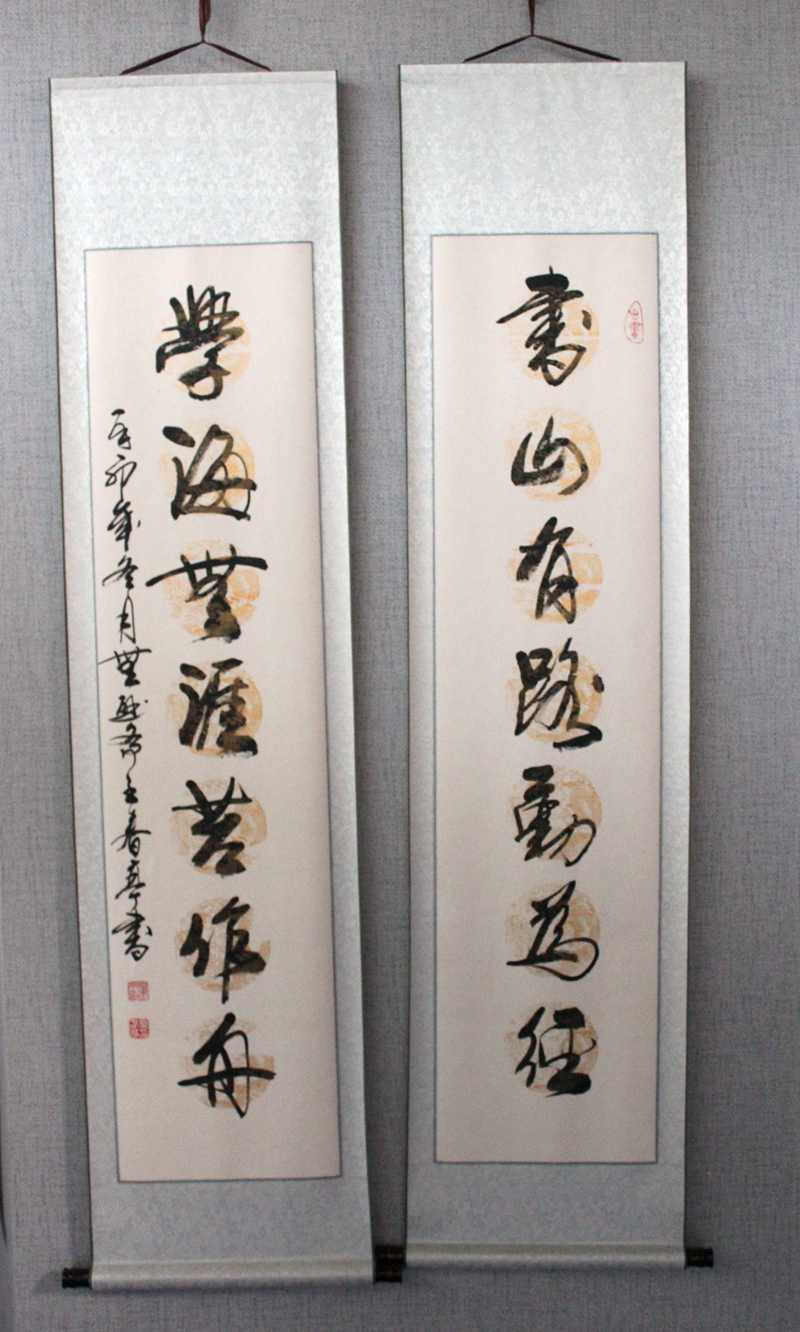 書山有路勤為徑
學海無涯苦作舟
辛卯年冬月無逸齋主春亭書